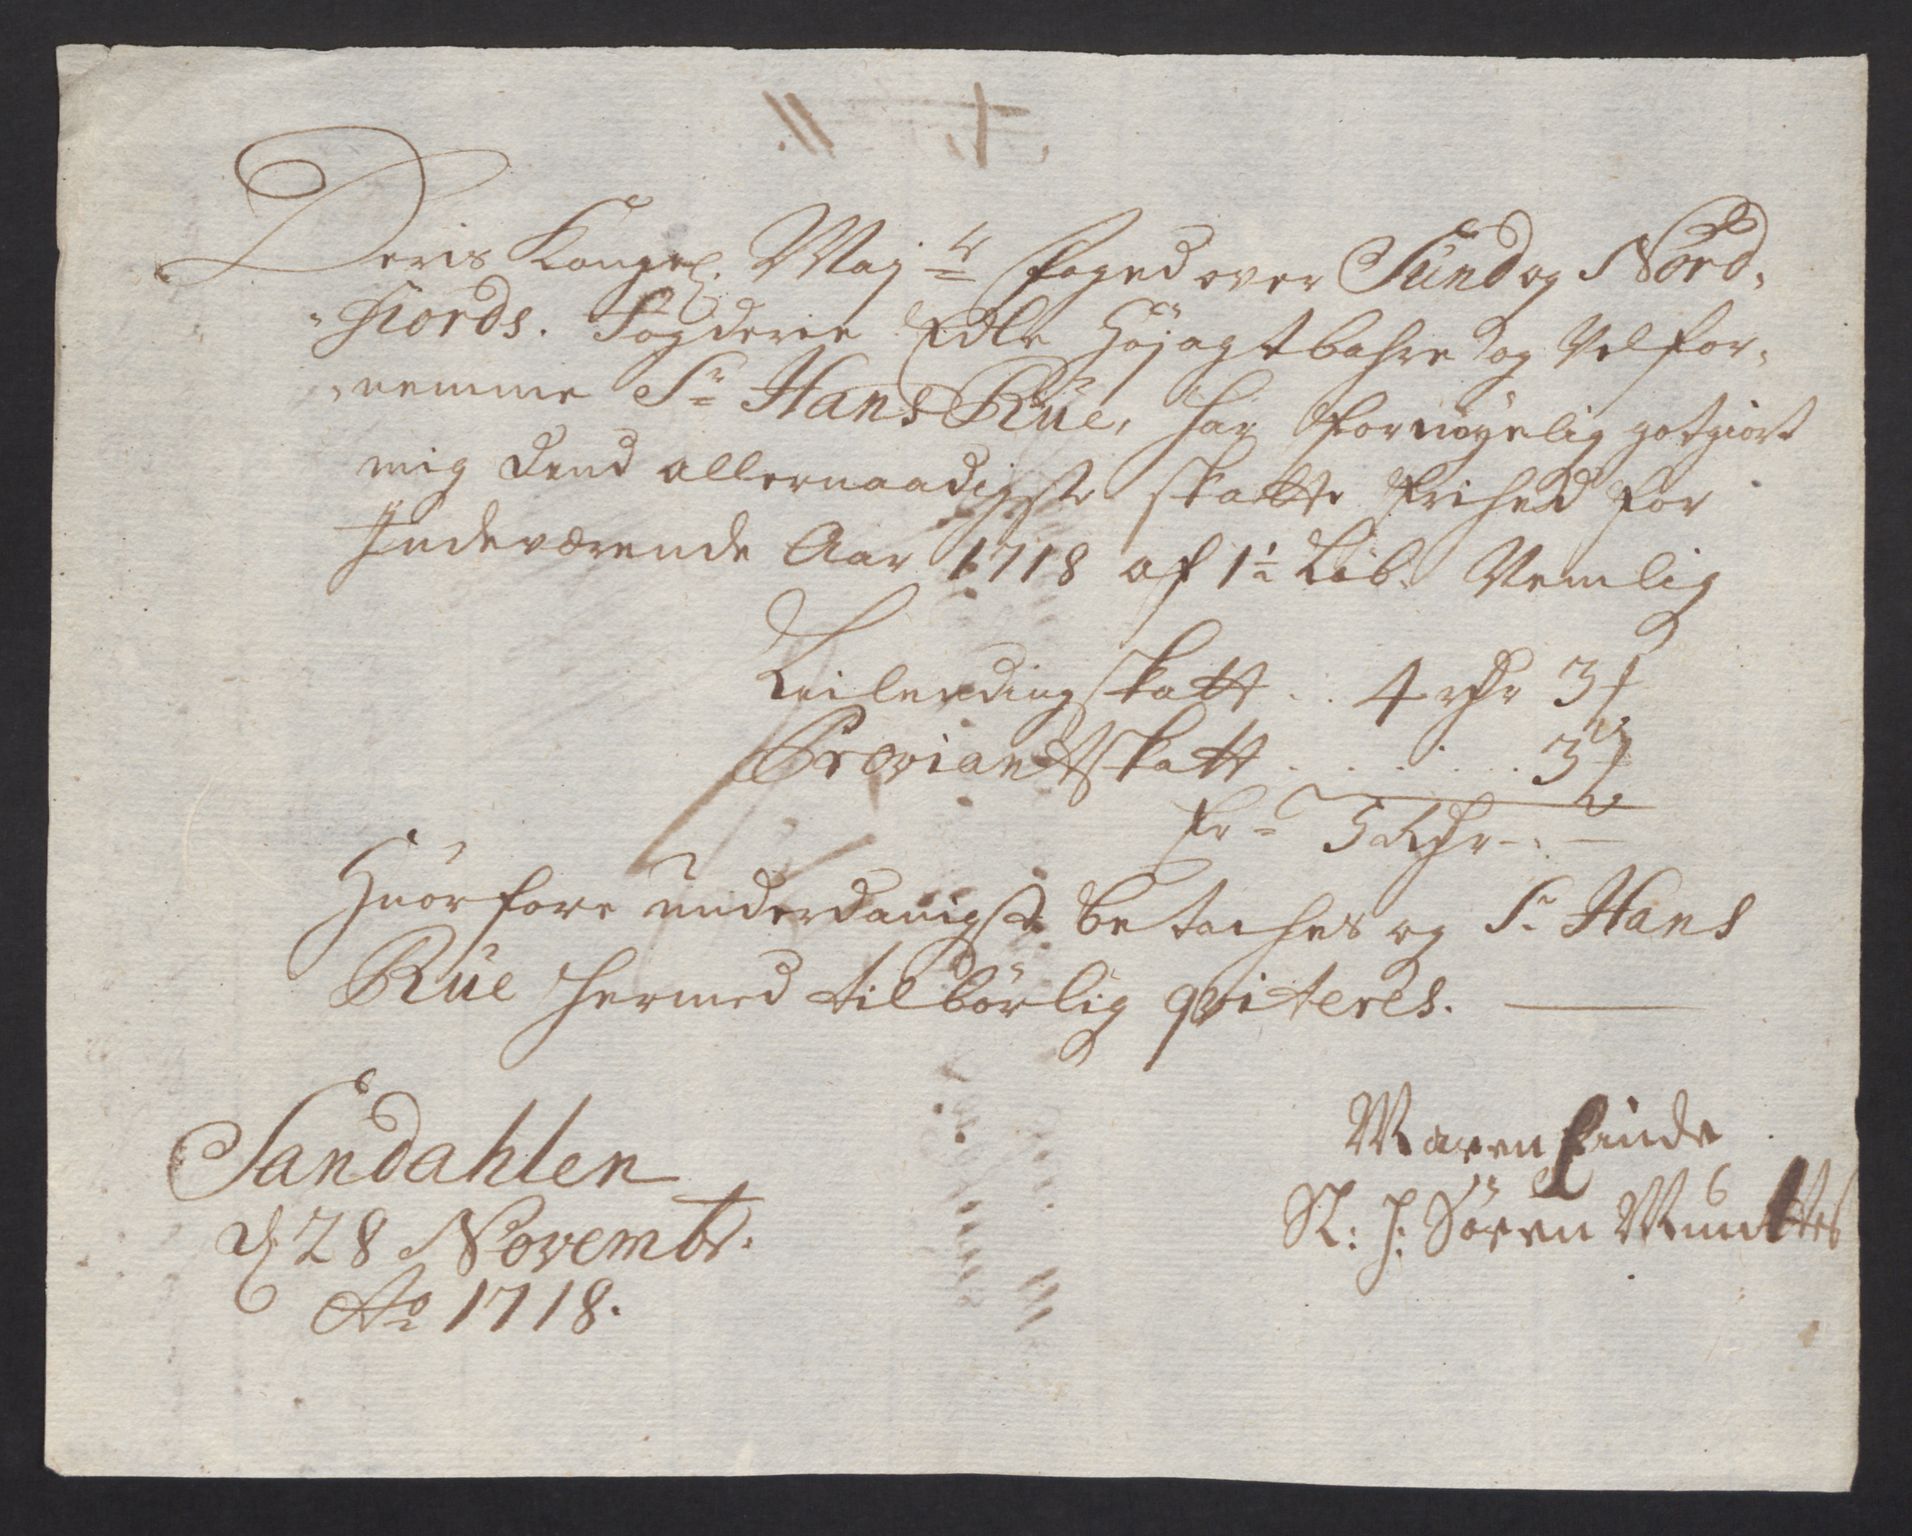 Deris Kongel. Maj:tz foged over Sund og Nord-
-fiords. Fogderie Edle Høyagtbahre og Velfor-
-nemme Sr Hans Rüe, har fornøyelig gotgiort
mig dend allernaadigste skatte frihed for
Indeværende Aar 1718 af 1½ Lób. Nemlig
Leilendingskatt .. 4 rdr 3 ₰
Proviantskatt . . . . . . 3 ₰
Er = 5 Rdr - . -
Huorfore underdanigst betaches og Sr. Hans
Rüe hermed tilbörlig qviteres.
Sandahlen
d. 28 Novembr.
Ao 1718.
Maren Finde
Sl: H: Søren Munttes